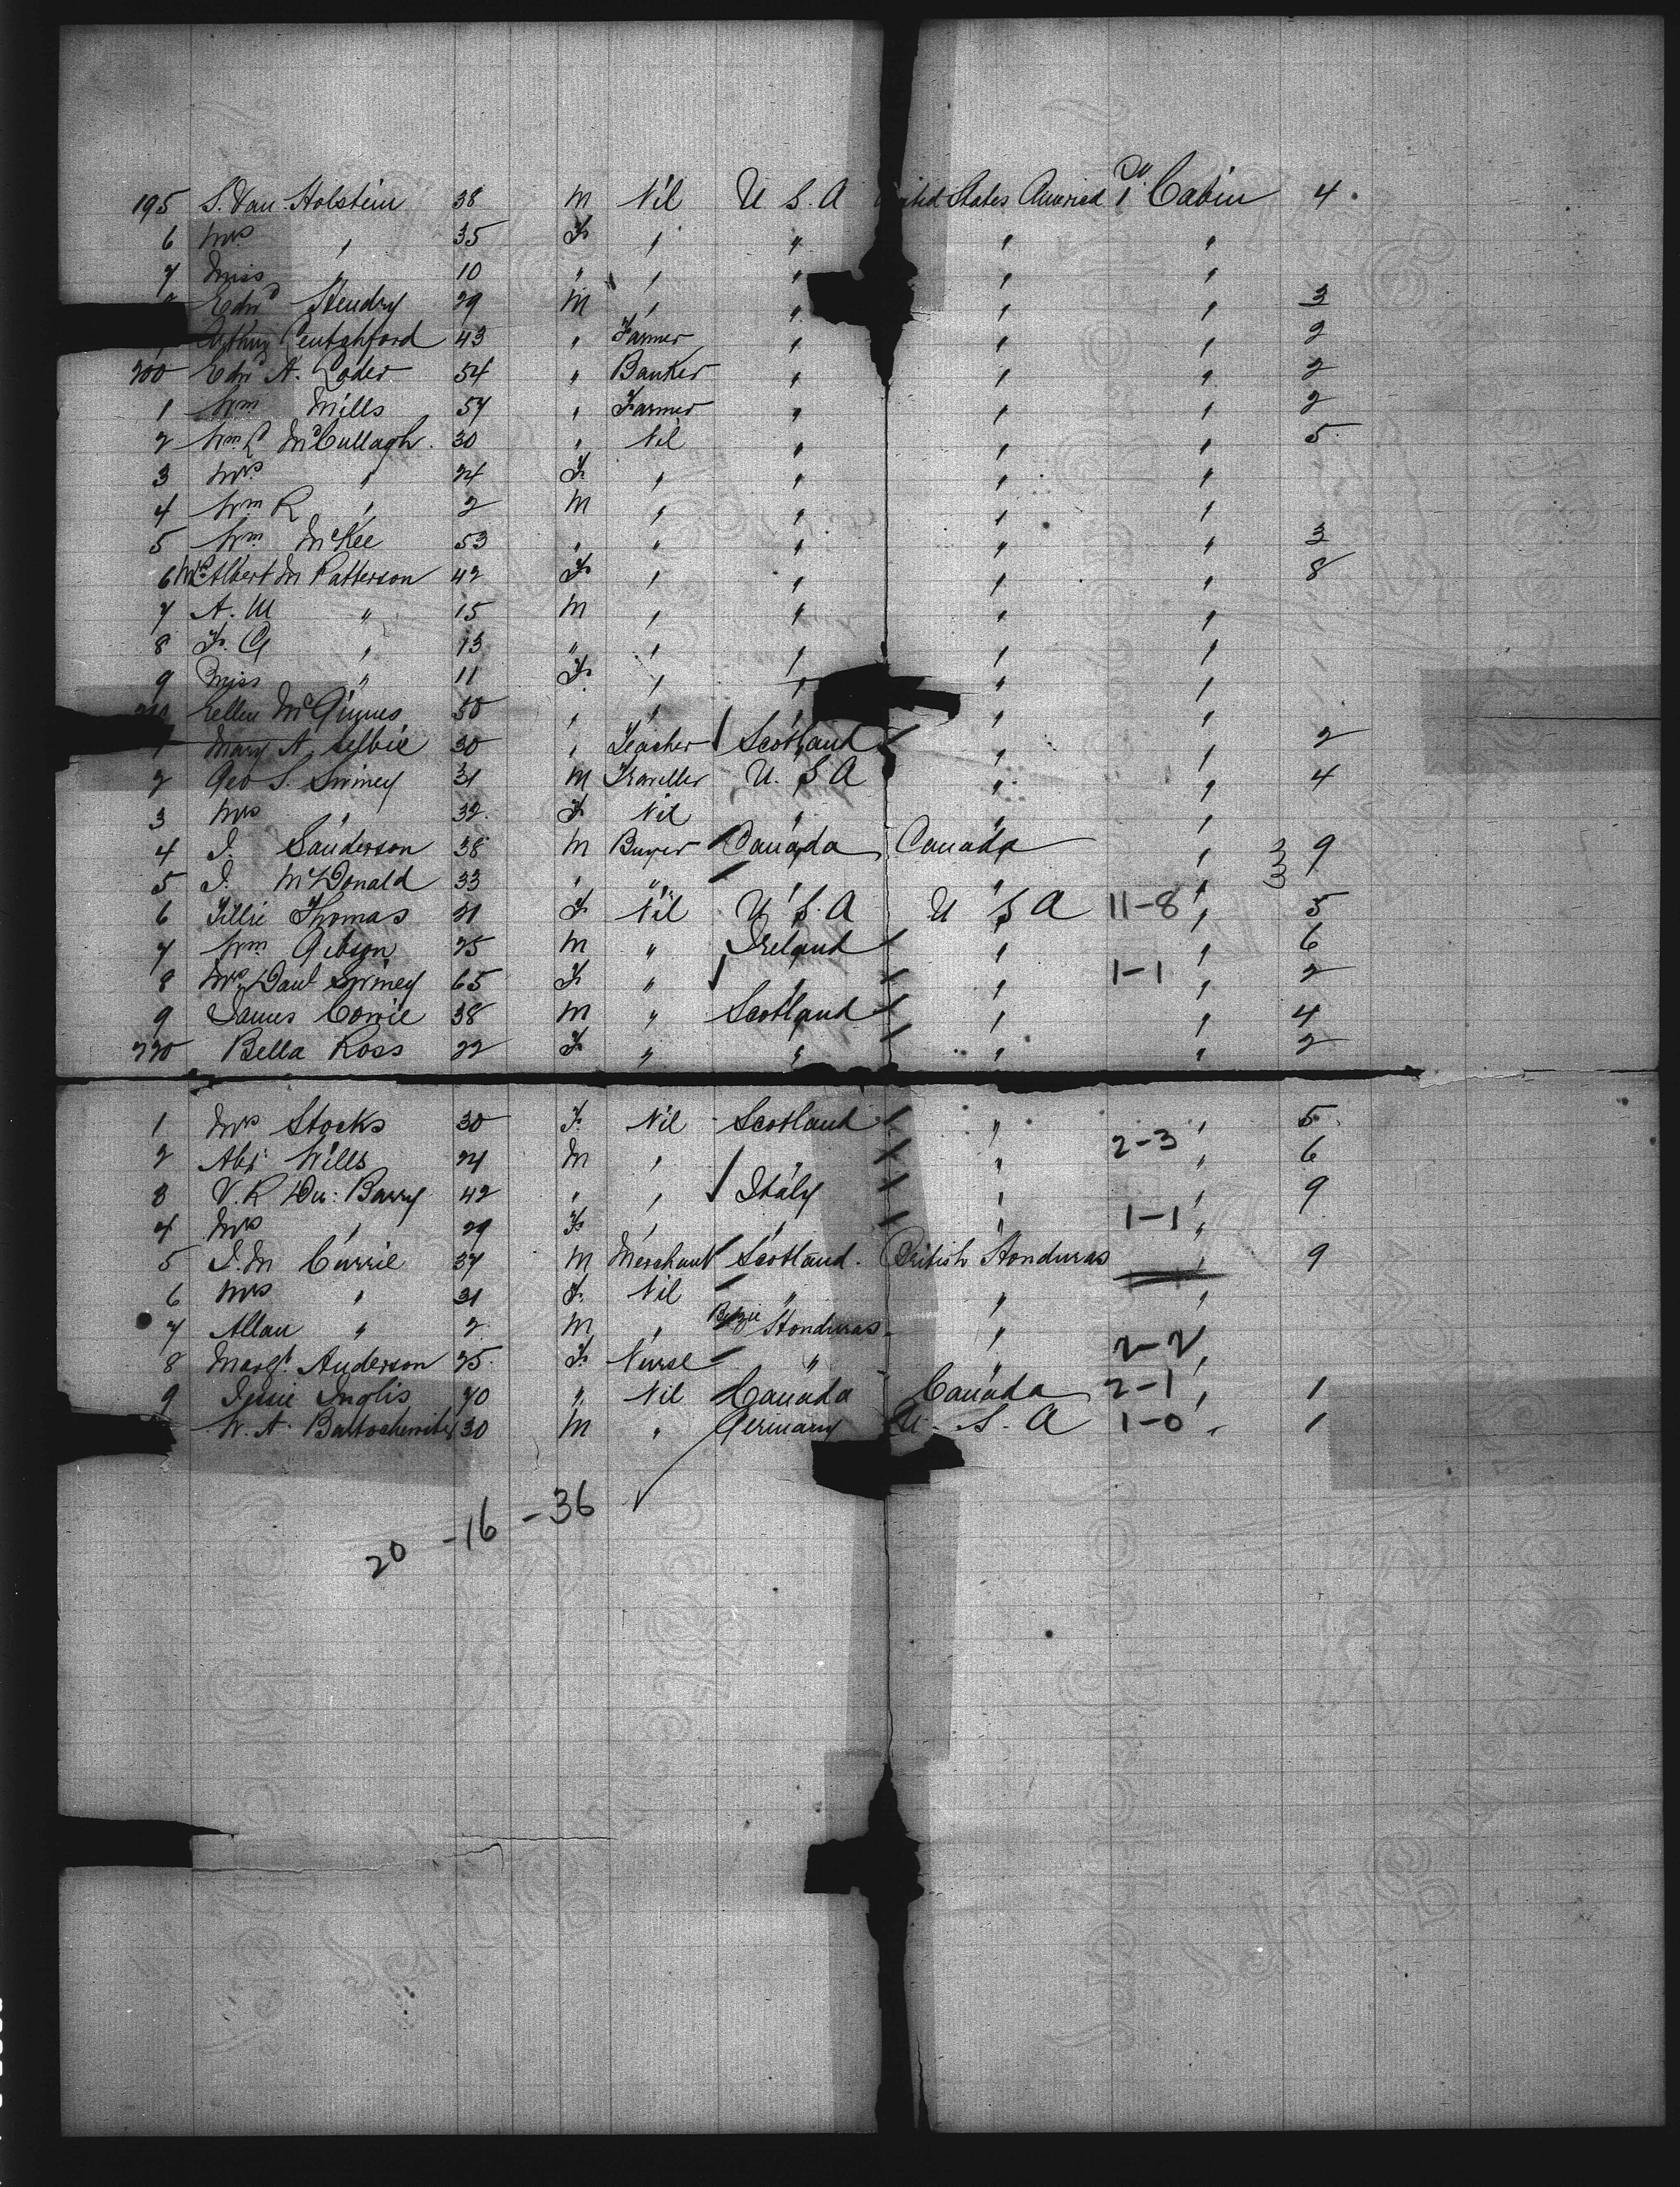 195 S. Van Holstein 38 M Nil U S. A United States America Do 1. Cabin 4.
6 Mrs " 35 F " " " "
7 Miss " 10 " " " " "
Edwd Hendry 29 M " " " " 3
43 " Farmer " " " 2
200 Edwd A. 54 " Banker " " " 2
1 Wm Mills 57 " Farmer " " " 2
2 Wm R McCullagh. 30 " Nil " " " 5.
3 Mrs " 24 F " " " "
4 Wm R " 2 M " " " "
5 Wm McKee 53 " " " " " 3
6 Mrs Albert M Patterson 42 F " " " " 8
7 A. M " 15 M " " " "
8 F. G " 13 " " " " "
9 Miss " 11 F " " " "
Ellen McGinnes 50 " " " " "
1 Mary A Selbie 30 " Teacher Scotland " " 2
2 Geo S. Swiney 31 M Traveller U. S A " " 4
3 Mrs " 32. F Nil " " "
4 J. Sanderson 38 M Buyer Canada Canada " 3 9
5 J. McDonald 33 " " " " " 3 3
6 Tillie Thomas 21 F Nil U S. A U S A 11-8 " 5
7 Wm Gibson 25 M " Ireland " " 6
8 Mrs Danl Swiney 65 F " " " 1-1 " 2
9 James Cowie 38 M " Scotland " " 4
220 Bella Ross 22 F " " " " 2
1 Mrs Stocks 30 F. Nil Scotland " " 5.
2 Abr Wills 24 M " " " 2-3 " 6
3 V. R Du: Barry 42 " " Italy " " 9
4 Mrs " 29 F " " " 1-1 "
5 J. M Currie 37 M Merchant Scotland. British Honduras " 9
6 Mrs " 31 F. Nil " " "
7 Allan " 2 M " Belize Honduras " "
8 Margt Anderson 25. F Nurse " " 2-2 "
9 Jessie Inglis 70 " Nil Canada Canada 2-1 " 1
W. A. 30 M " Germany U. S. A 1-0 " 1
20 -16 -36